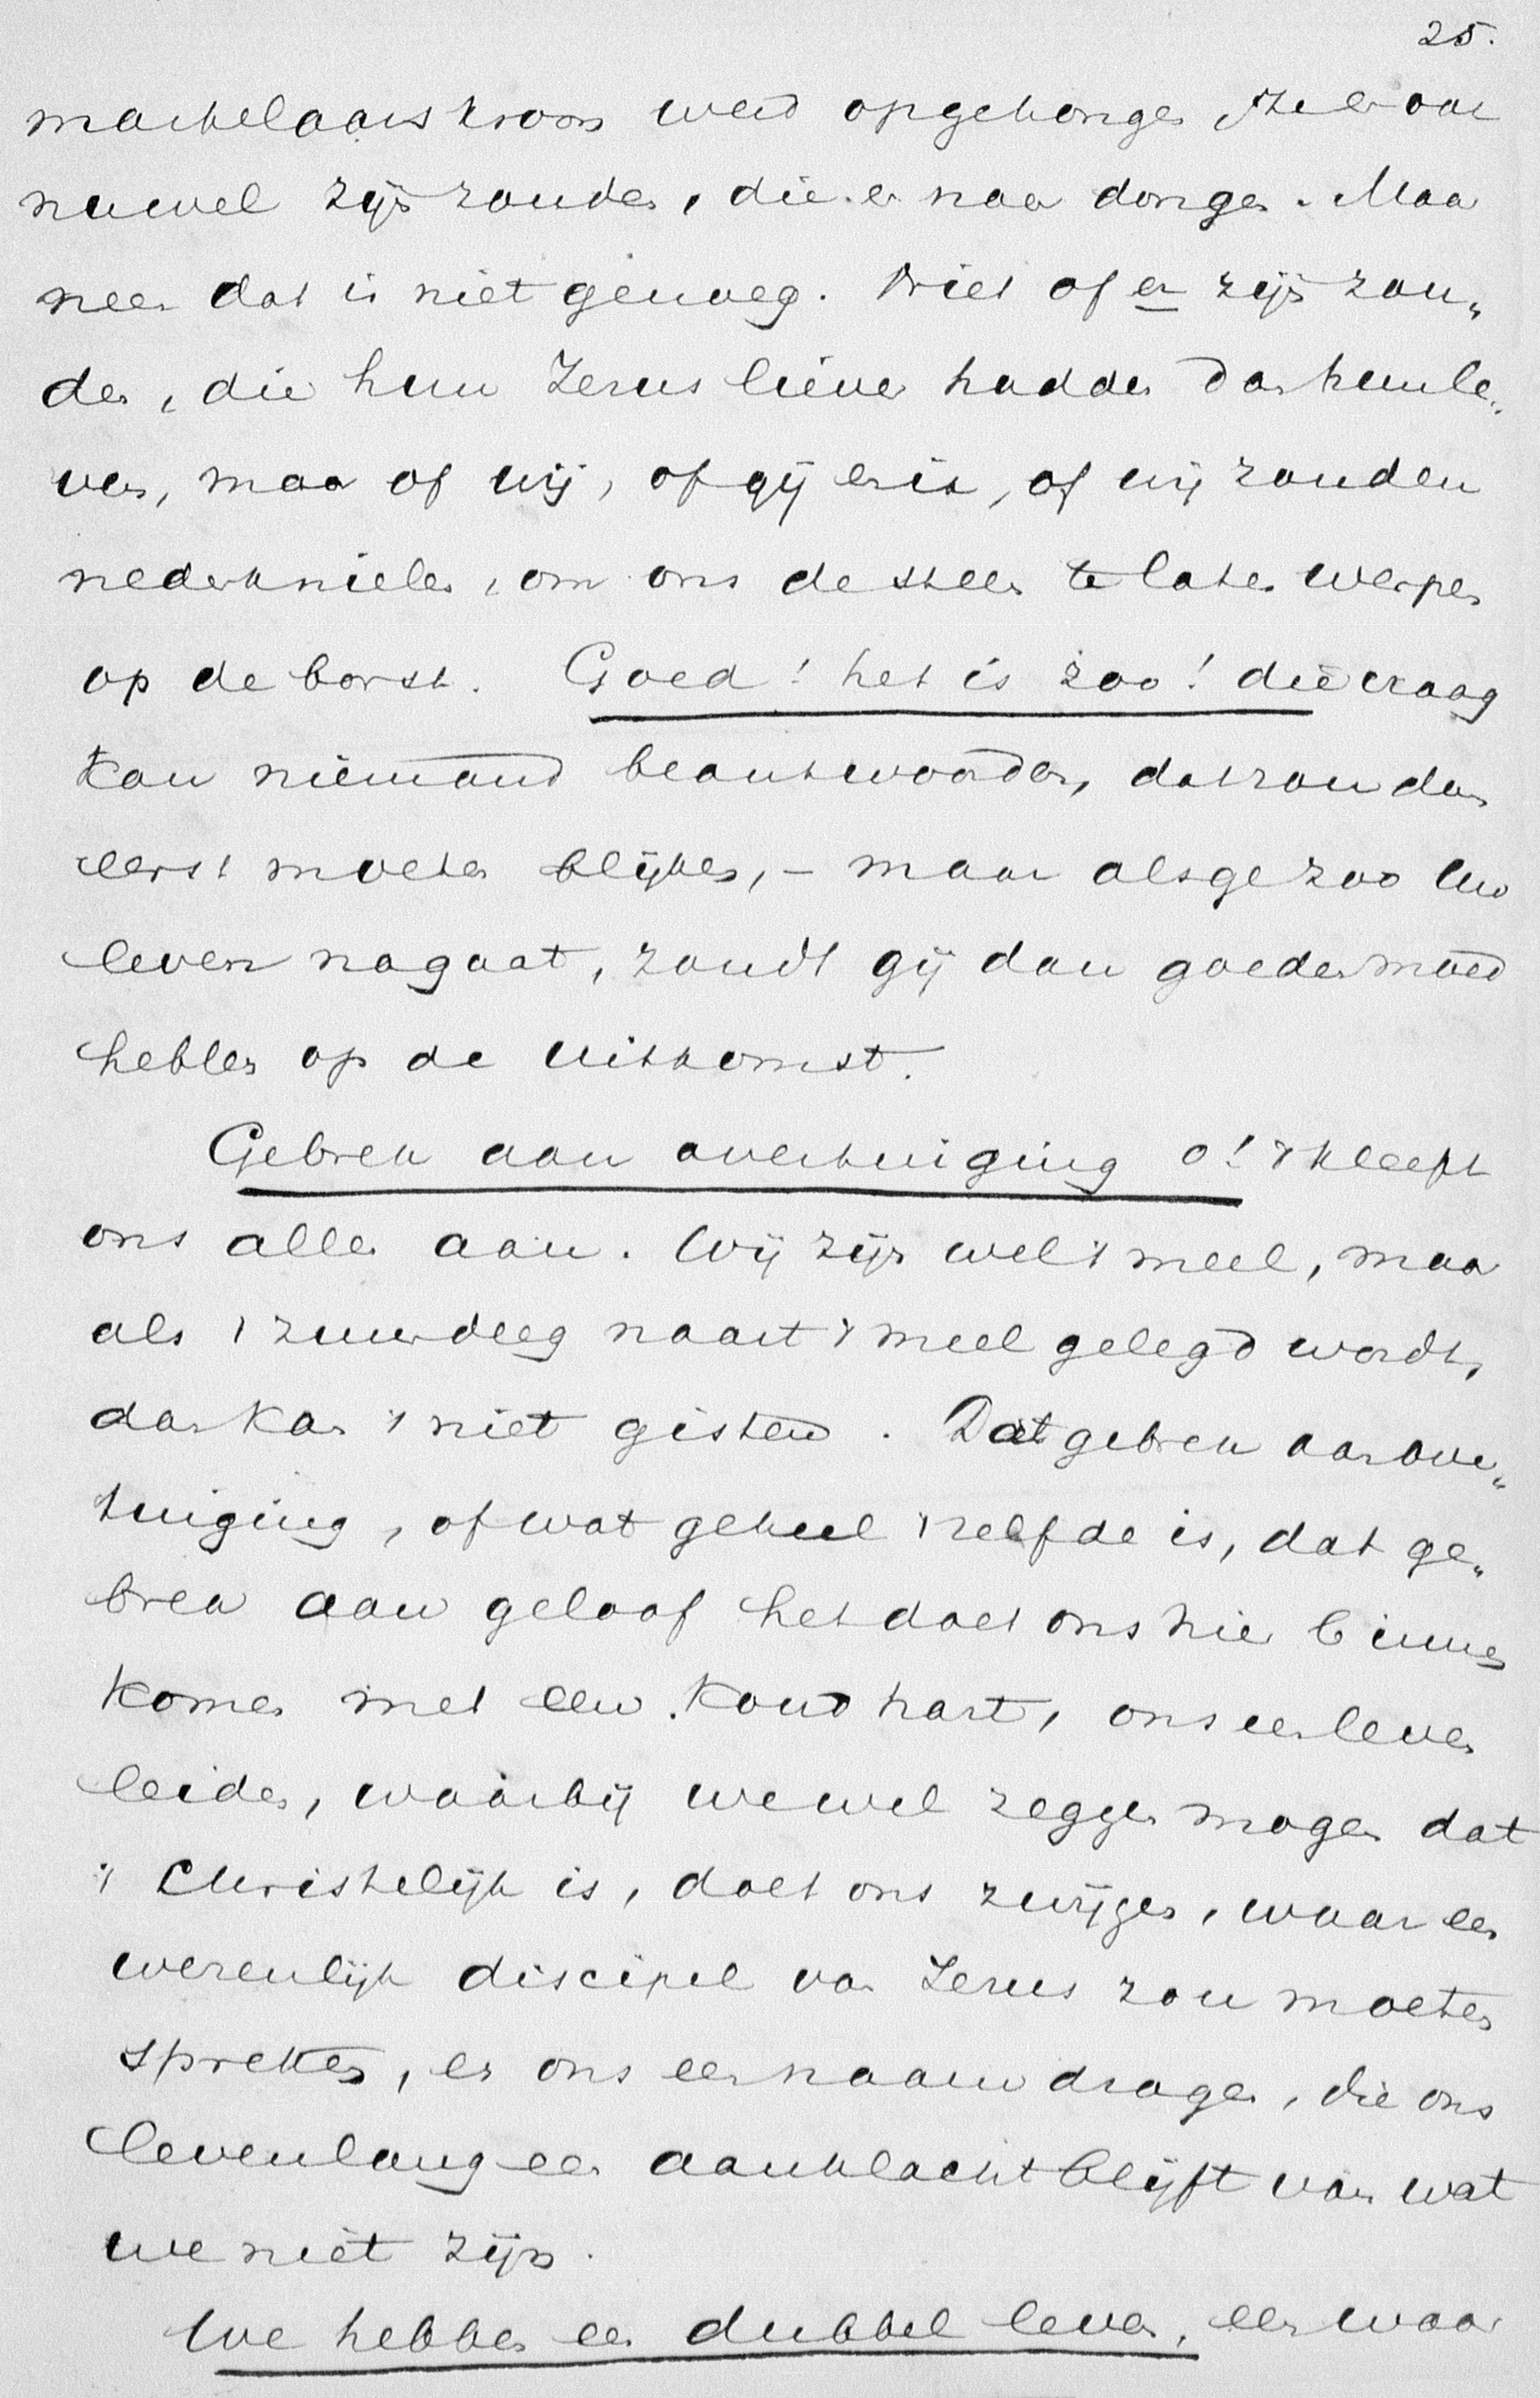 25.
martelaarskroon werd opgehangen er ook
nu wel zijn zouden, die er naar dongen. Maar
neen dat is niet genoeg. Niet of er zijn zou„
den, die hun Jezus liever hadden dan hun le„
ven, maar of wij, of gij en ik, of wij zouden
nederknielen, om ons de steen te laten werpen
op de borst. Goed! het is zoo! die vraag
kan niemand beantwoorden, dat zou dan
eerst moeten blijken, – maar als ge zoo uw
leven nagaat, zoudt gij dan goeden moed
hebben op de uitkomst.
Gebrek aan overtuiging o! 't kleeft
ons allen aan. Wij zijn wel 't meel, maar
als 't zuurdeeg naast 't meel gelegd wordt,
dan kan 't niet gisten. Dat gebrek aan over„
tuiging, of wat geheel 't zelfde is, dat ge„
brek aan geloof het doet ons hier binnen
komen met een koud hart, ons een leven
leiden, waarbij we wel zeggen mogen dat
't Christelijk is, doet ons zwijgen, waar een
wezenlijk discipel van Jezus zou moeten
spreken, en ons een naam dragen, die ons
levenlang een aanklacht blijft van wat
we niet zijn.
We hebben een dubbel leven, een waar